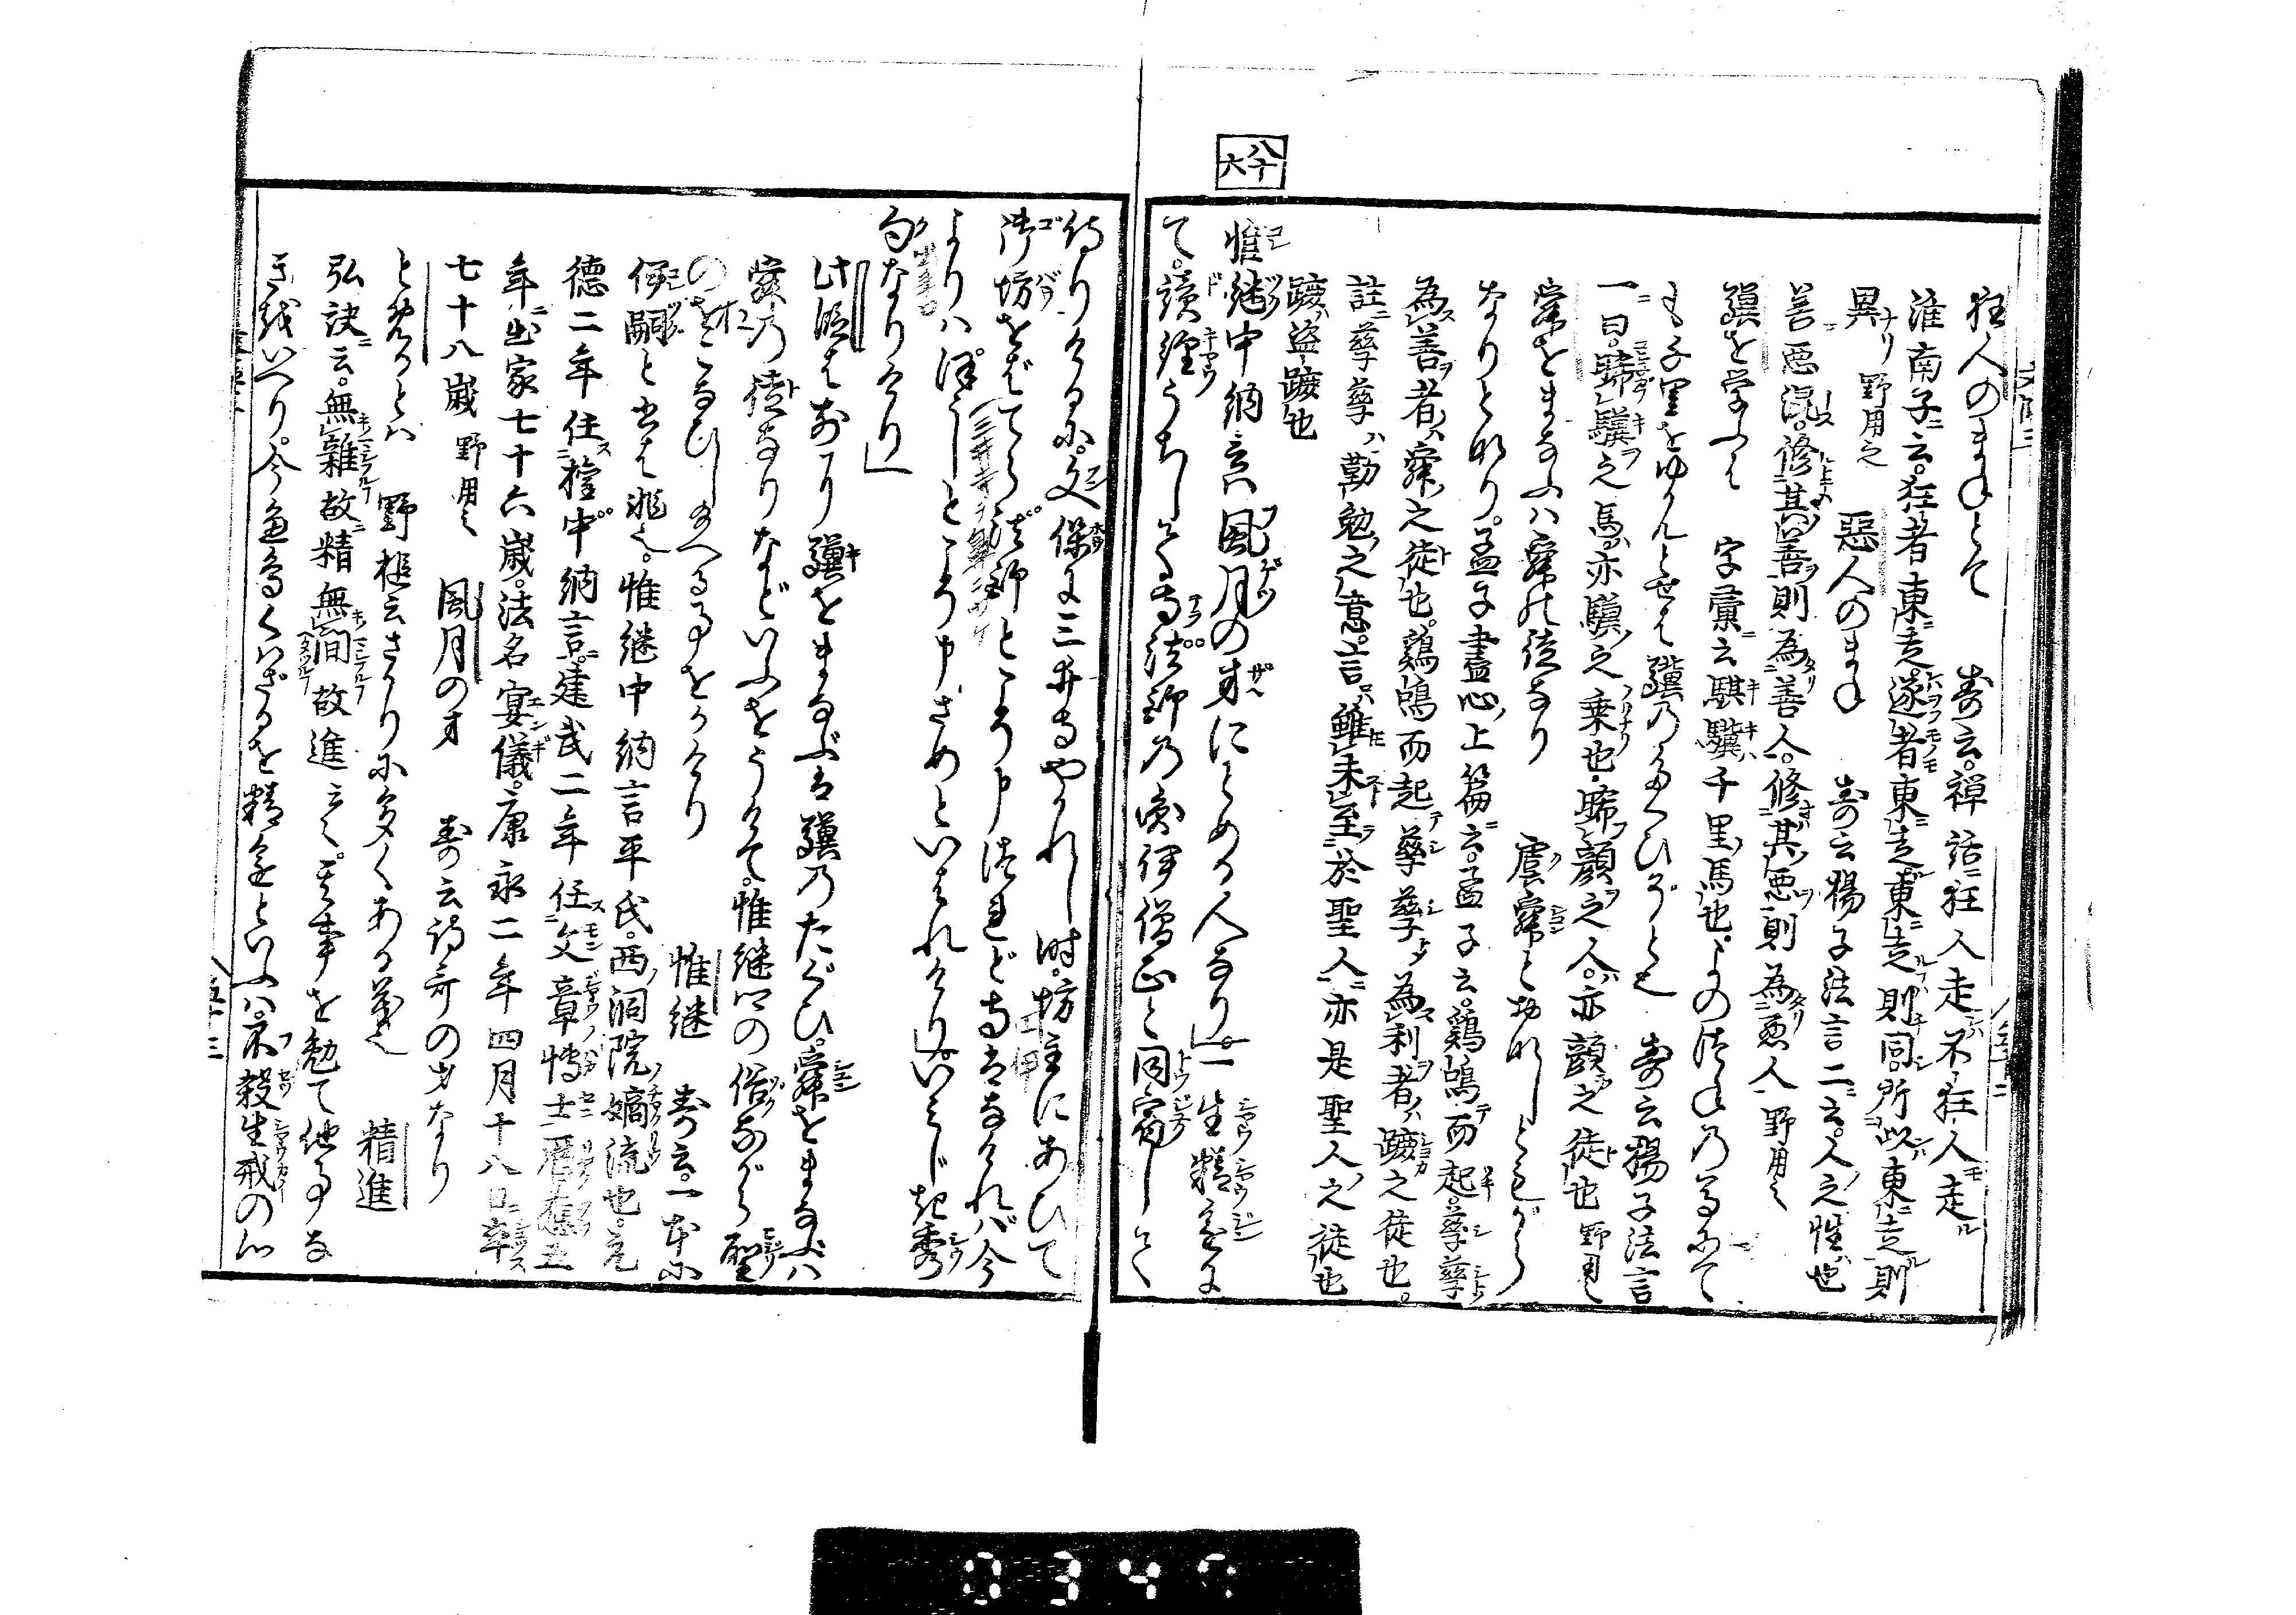 狂人のまねとて　寿云。禅話ニ狂人走ハ不狂人モ走ル
淮南子ニ云。狂者東ニ走逐者東ニ走東ニ走ルヿハ則同シ所以東ニ走ル則
異ナリ　野用之　悪人のまね　寿云揚子法言二ニ云。人之性ハ也
善悪混ス。修其善ヲ則為善人。修其悪ヲ則為悪人　野用之
驥を学ふは　字彙ニ云騏驥ハ千里ノ馬也よの
千里をゆかんとせは驥のたくひぞと也　寿云揚子法言
一ニ曰。睎驥ヲ之馬ハ亦驥之乗也・睎顔ヲ之人ハ亦顔之徒也　野用之
舜をまなふハ舜の徒なり　虞舜と
なりとなり。孟子盡心ノ上篇ニ云。孟子云。鶏鳴而起孳孳
為善ヲ者ハ舜之徒也。鶏鳴而起孳孳為利ヲ者ハ蹠之徒也。
註ニ孳孳ハ勤勉之意。言ハ雖未至於聖人ニ亦是聖人之徒也
蹠ハ盗蹠也
八十六
惟継中納言ハ風月の才にとめる人なり一生精進に
て。読経うちして寺法師の円伊僧正と同宿して
侍りけるに。文保に三井寺やかれし時。坊主にあひて
御坊をばてら法師とこそ申つれど寺はなけれバ今
よりハほうしとこそ申さめといはれけりいみじき秀
句なりけり
此段はまへより驥をまなぶは驥のたぐひ。舜をまなぶハ
舜の徒なりなどいふをうけて。惟継の俗ながら聖
のをこなひし給へる事をかけり
惟継　寿云。一本に
伊嗣と書は非也。惟継中納言平氏。西ノ洞院ノ嫡流也。
徳二年任権中納言建武二年任文章博士暦應五
年出家七十六歳。法名宴儀。康永二年四月十八日ニ卒ス
七十八歳　野用之　風月の才　寿云詩哥の才なり
とめるとハ　野槌云さかりに多くある義也　精進
弘决ニ云。無雑故精無間故進云々。其事を勉て他事な
きをいへり。今魚鳥くハざるを精進といふハ。不殺生戒の心
0347